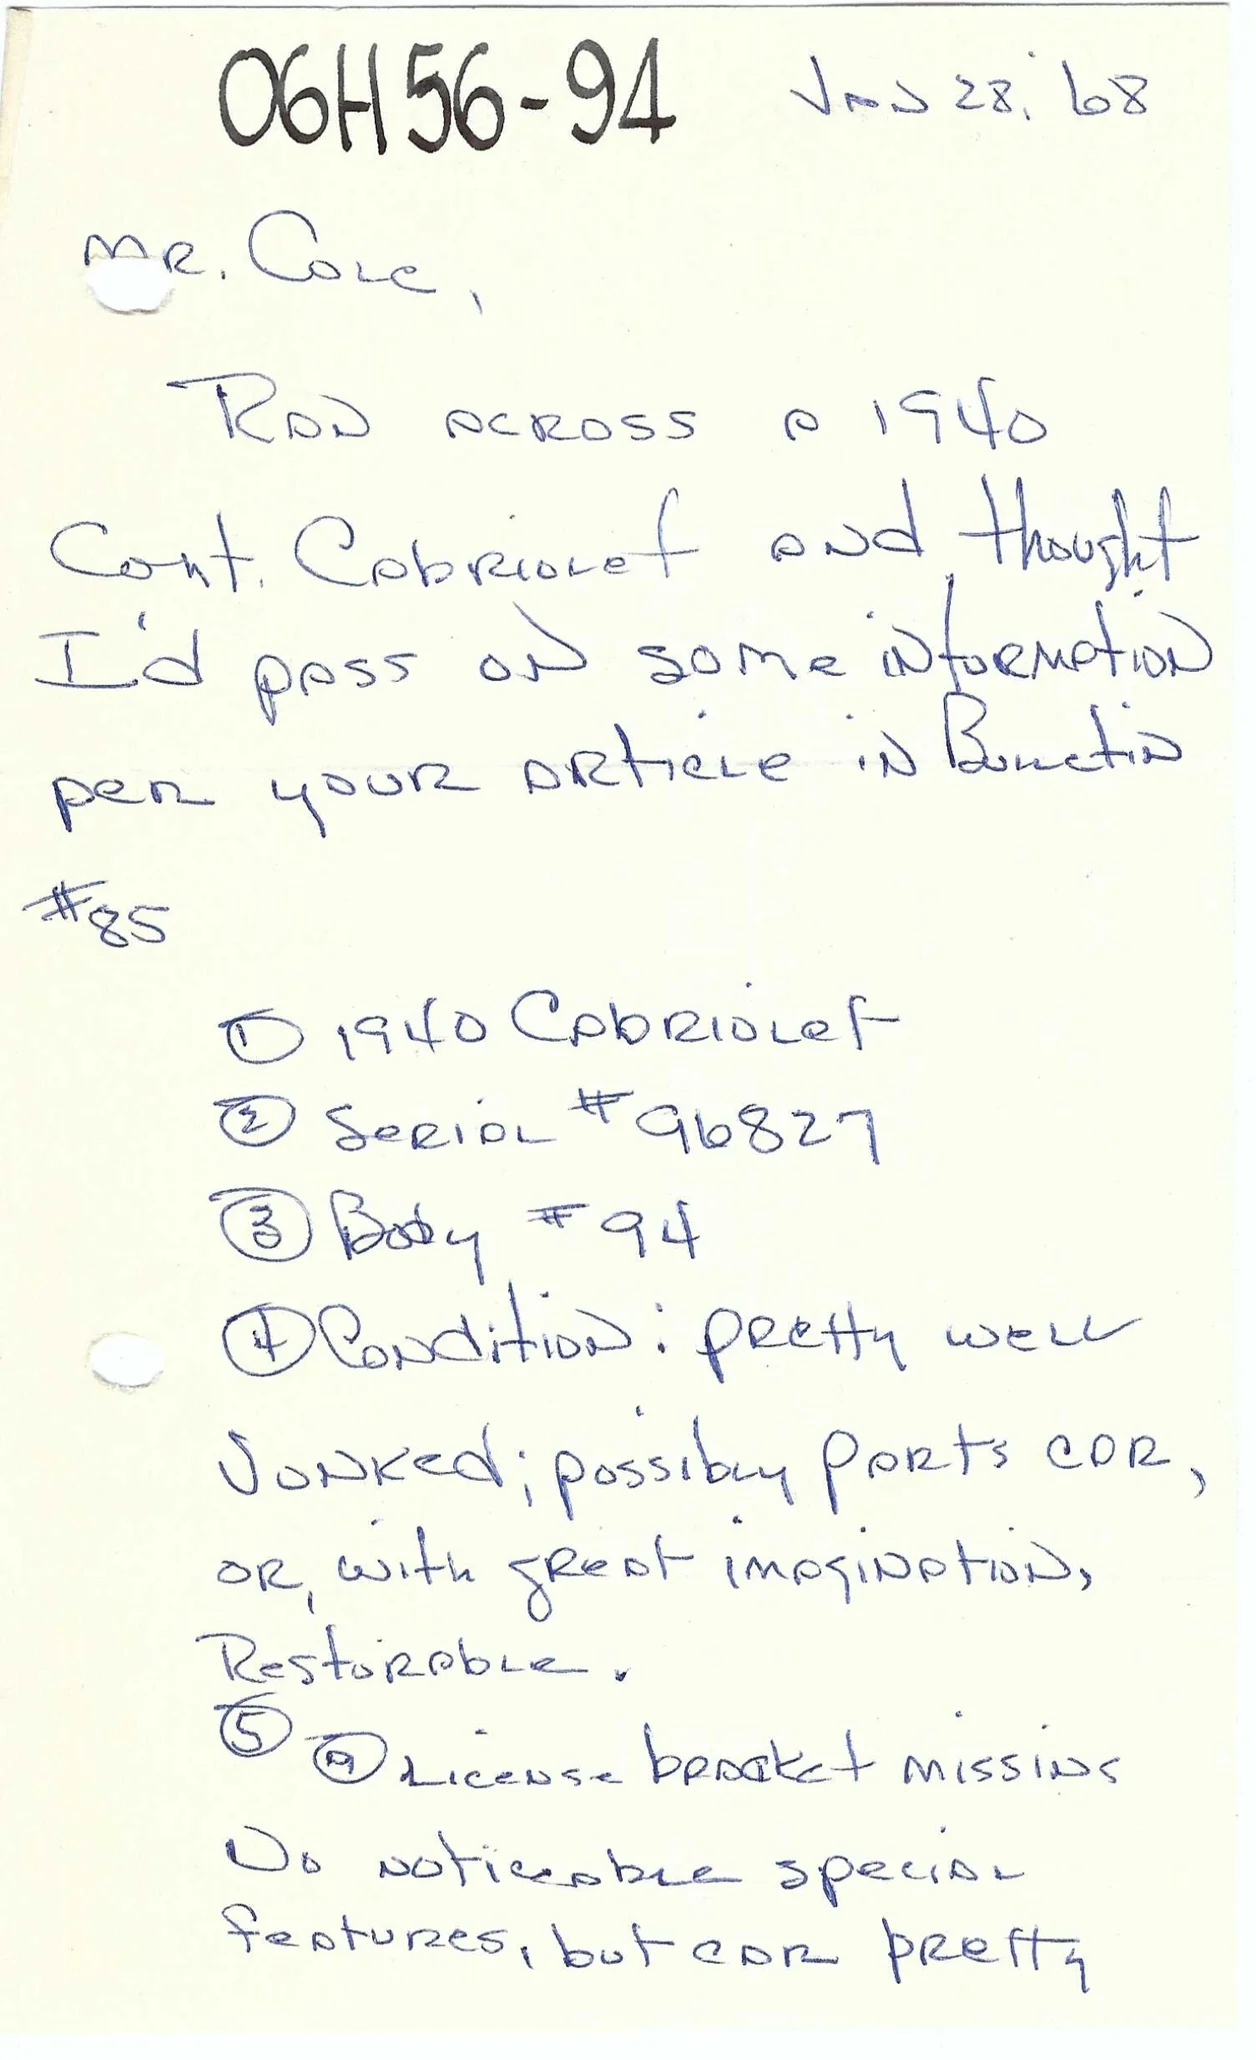 06H56-94
Jan 28, '68
Mr. Cole,
Ran across a 1940
Cont. Cabriolet and thought
I'd pass on some information
per your article in Bulletin
#85
① 1940 Cabriolet
② Serial #96827
③ Body #94
④ Condition: pretty well
Junked; possibly parts car,
or, with great imagination,
Restorable.
⑤ ⓐ License bracket missing
No noticeable special
features, but car pretty